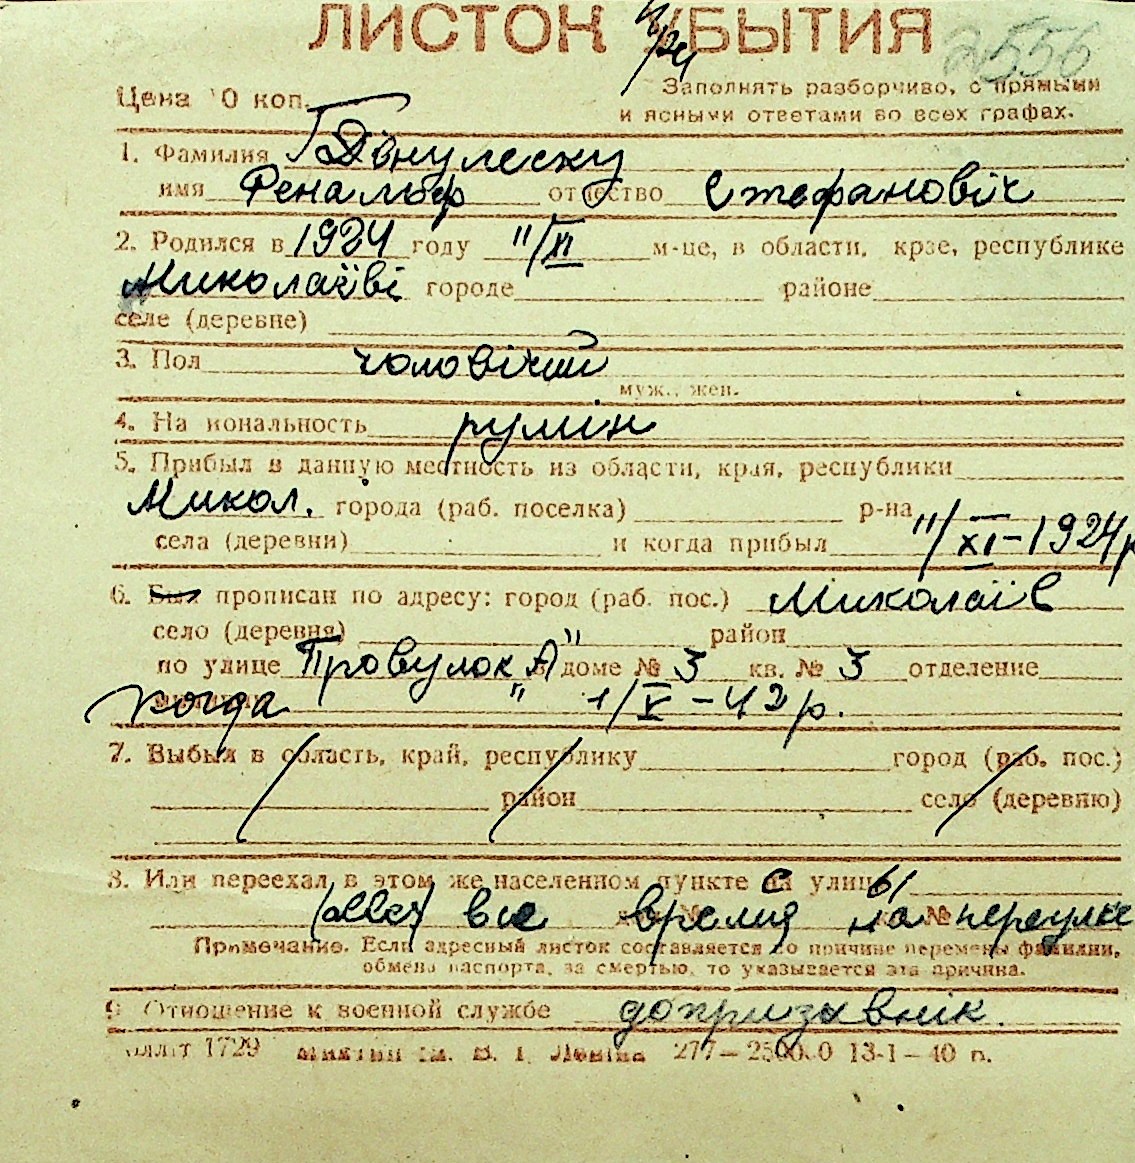 ЛИСТОК УБЫТИЯ
2556
Цена 10 коп. Заполнять разборчиво, с прямыми
и ясными ответами во всех графах.
1. Фамилия
имя Реналф отчество Стефановіч
2. Родился в 1924 году 11/XI м-це, в области, крае, республике
Миколаїві городе районе
селе (деревне)
3. Пол чоловічий
муж., жен.
4. Национальность румін
5. Прибыл в данную местность из области, края, республики
Микол. города (раб. поселка) р-на
села (деревни) и когда прибыл 11/XI-1924 р
6. Был прописан по адресу: город (раб. пос.) Миколаїв
село (деревня) район
по улице Провулок „А" в доме № 3 кв. № 3 отделение
когда 1/V-42 р.
7. Выбыл в область, край, республику город (раб. пос.)
район село (деревню)
8. Или переехал в этом же населенном пункте с улицы
все время на № переулке
Примечание. Если адресный листок составляется по причине перемены фамилии,
обмена паспорта, за смертью, то указывается эта причина.
9. Отношение к военной службе допризывнік.
1729 им. В. І. Леніна 277— 13-1-40 п.